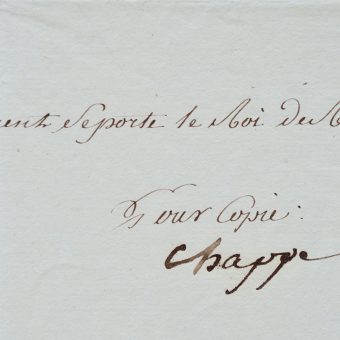 ent Se porte le Roi de
Pour Copie:
Chappe